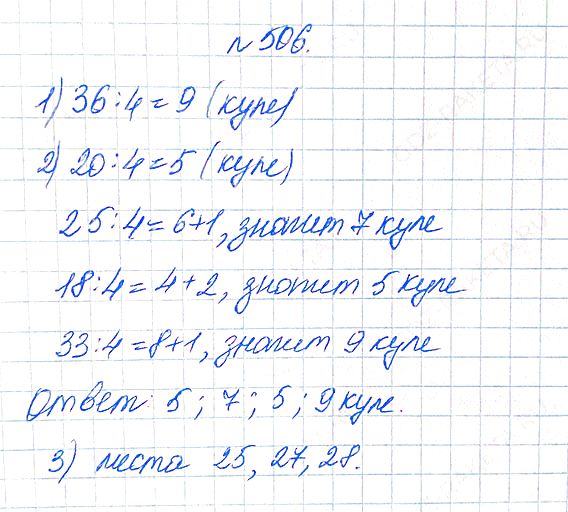 № 506.
1) 36:4=9 (купе)
2) 20:4=5 (купе)
25:4=6+1, значит 7 купе
18:4=4+2, значит 5 купе
33:4=8+1, значит 9 купе
Ответ: 5; 7; 5; 9 купе.
3) места 25, 27, 28.